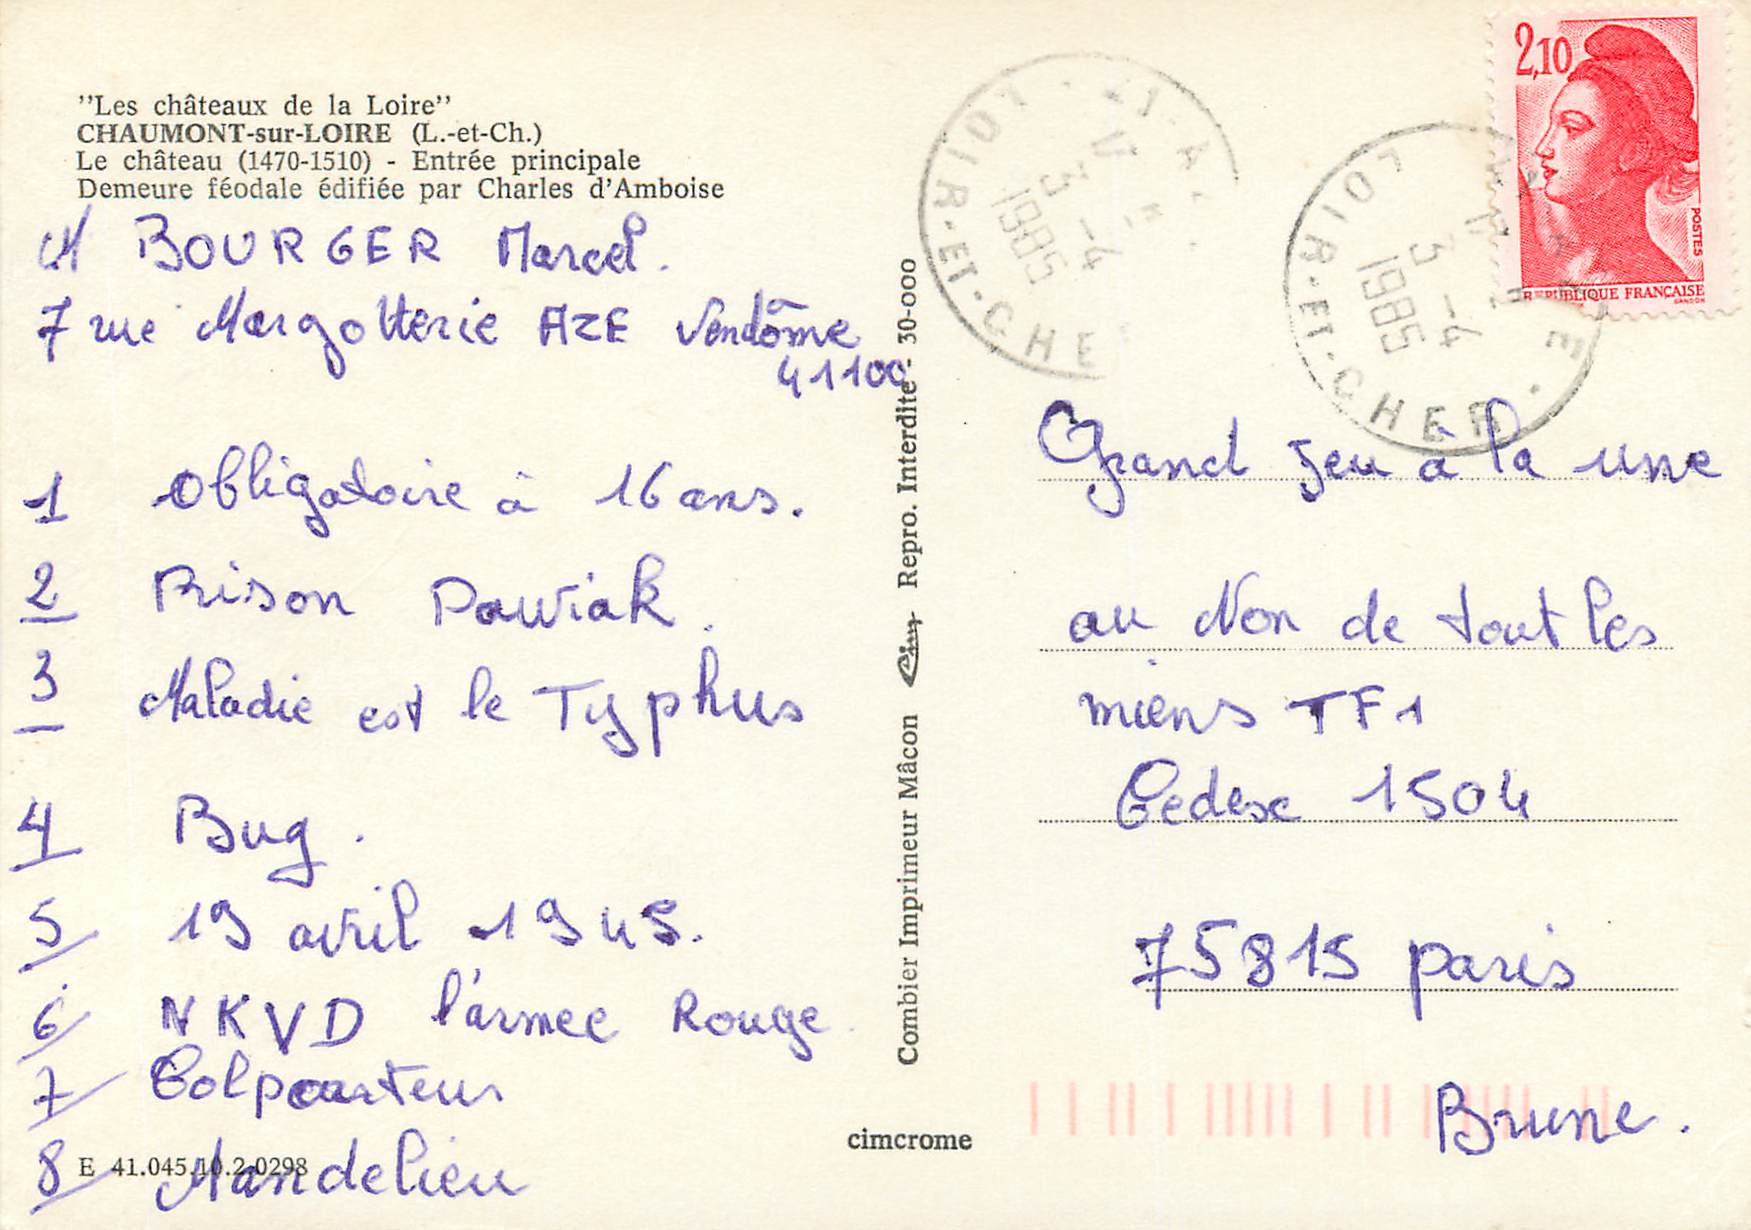 "Les châteaux de la Loire"
CHAUMONT-sur-LOIRE (L.-et-Ch.)
Le château (1470-1510) - Entrée principale
Demeure féodale édifiée par Charles d'Amboise
M BOURGER Marcel.
7 rue Margotterie AZE Vendôme
41100
1 Obligatoire à 16 ans.
2 Prison Pawiak.
3 Maladie est le Typhus
4 Bug.
5 19 avril 1945.
6 NKVD l'armee Rouge
7 Colpourteur
8 Mandelieu
E 41.045.10.2.0298
Combier Imprimeur Mâcon Cim Repro. Interdite - 30-000
cimcrome
LOIR-ET-CHE
3 -4
1985
LOIR-ET-CHER
3 -4
1985
2,10
POSTES
REPUBLIQUE FRANÇAISE
GANDON
Grand Jeu à la une
au Non de tout les
miens TF1
Cedex 1504
75815 paris
Brune.